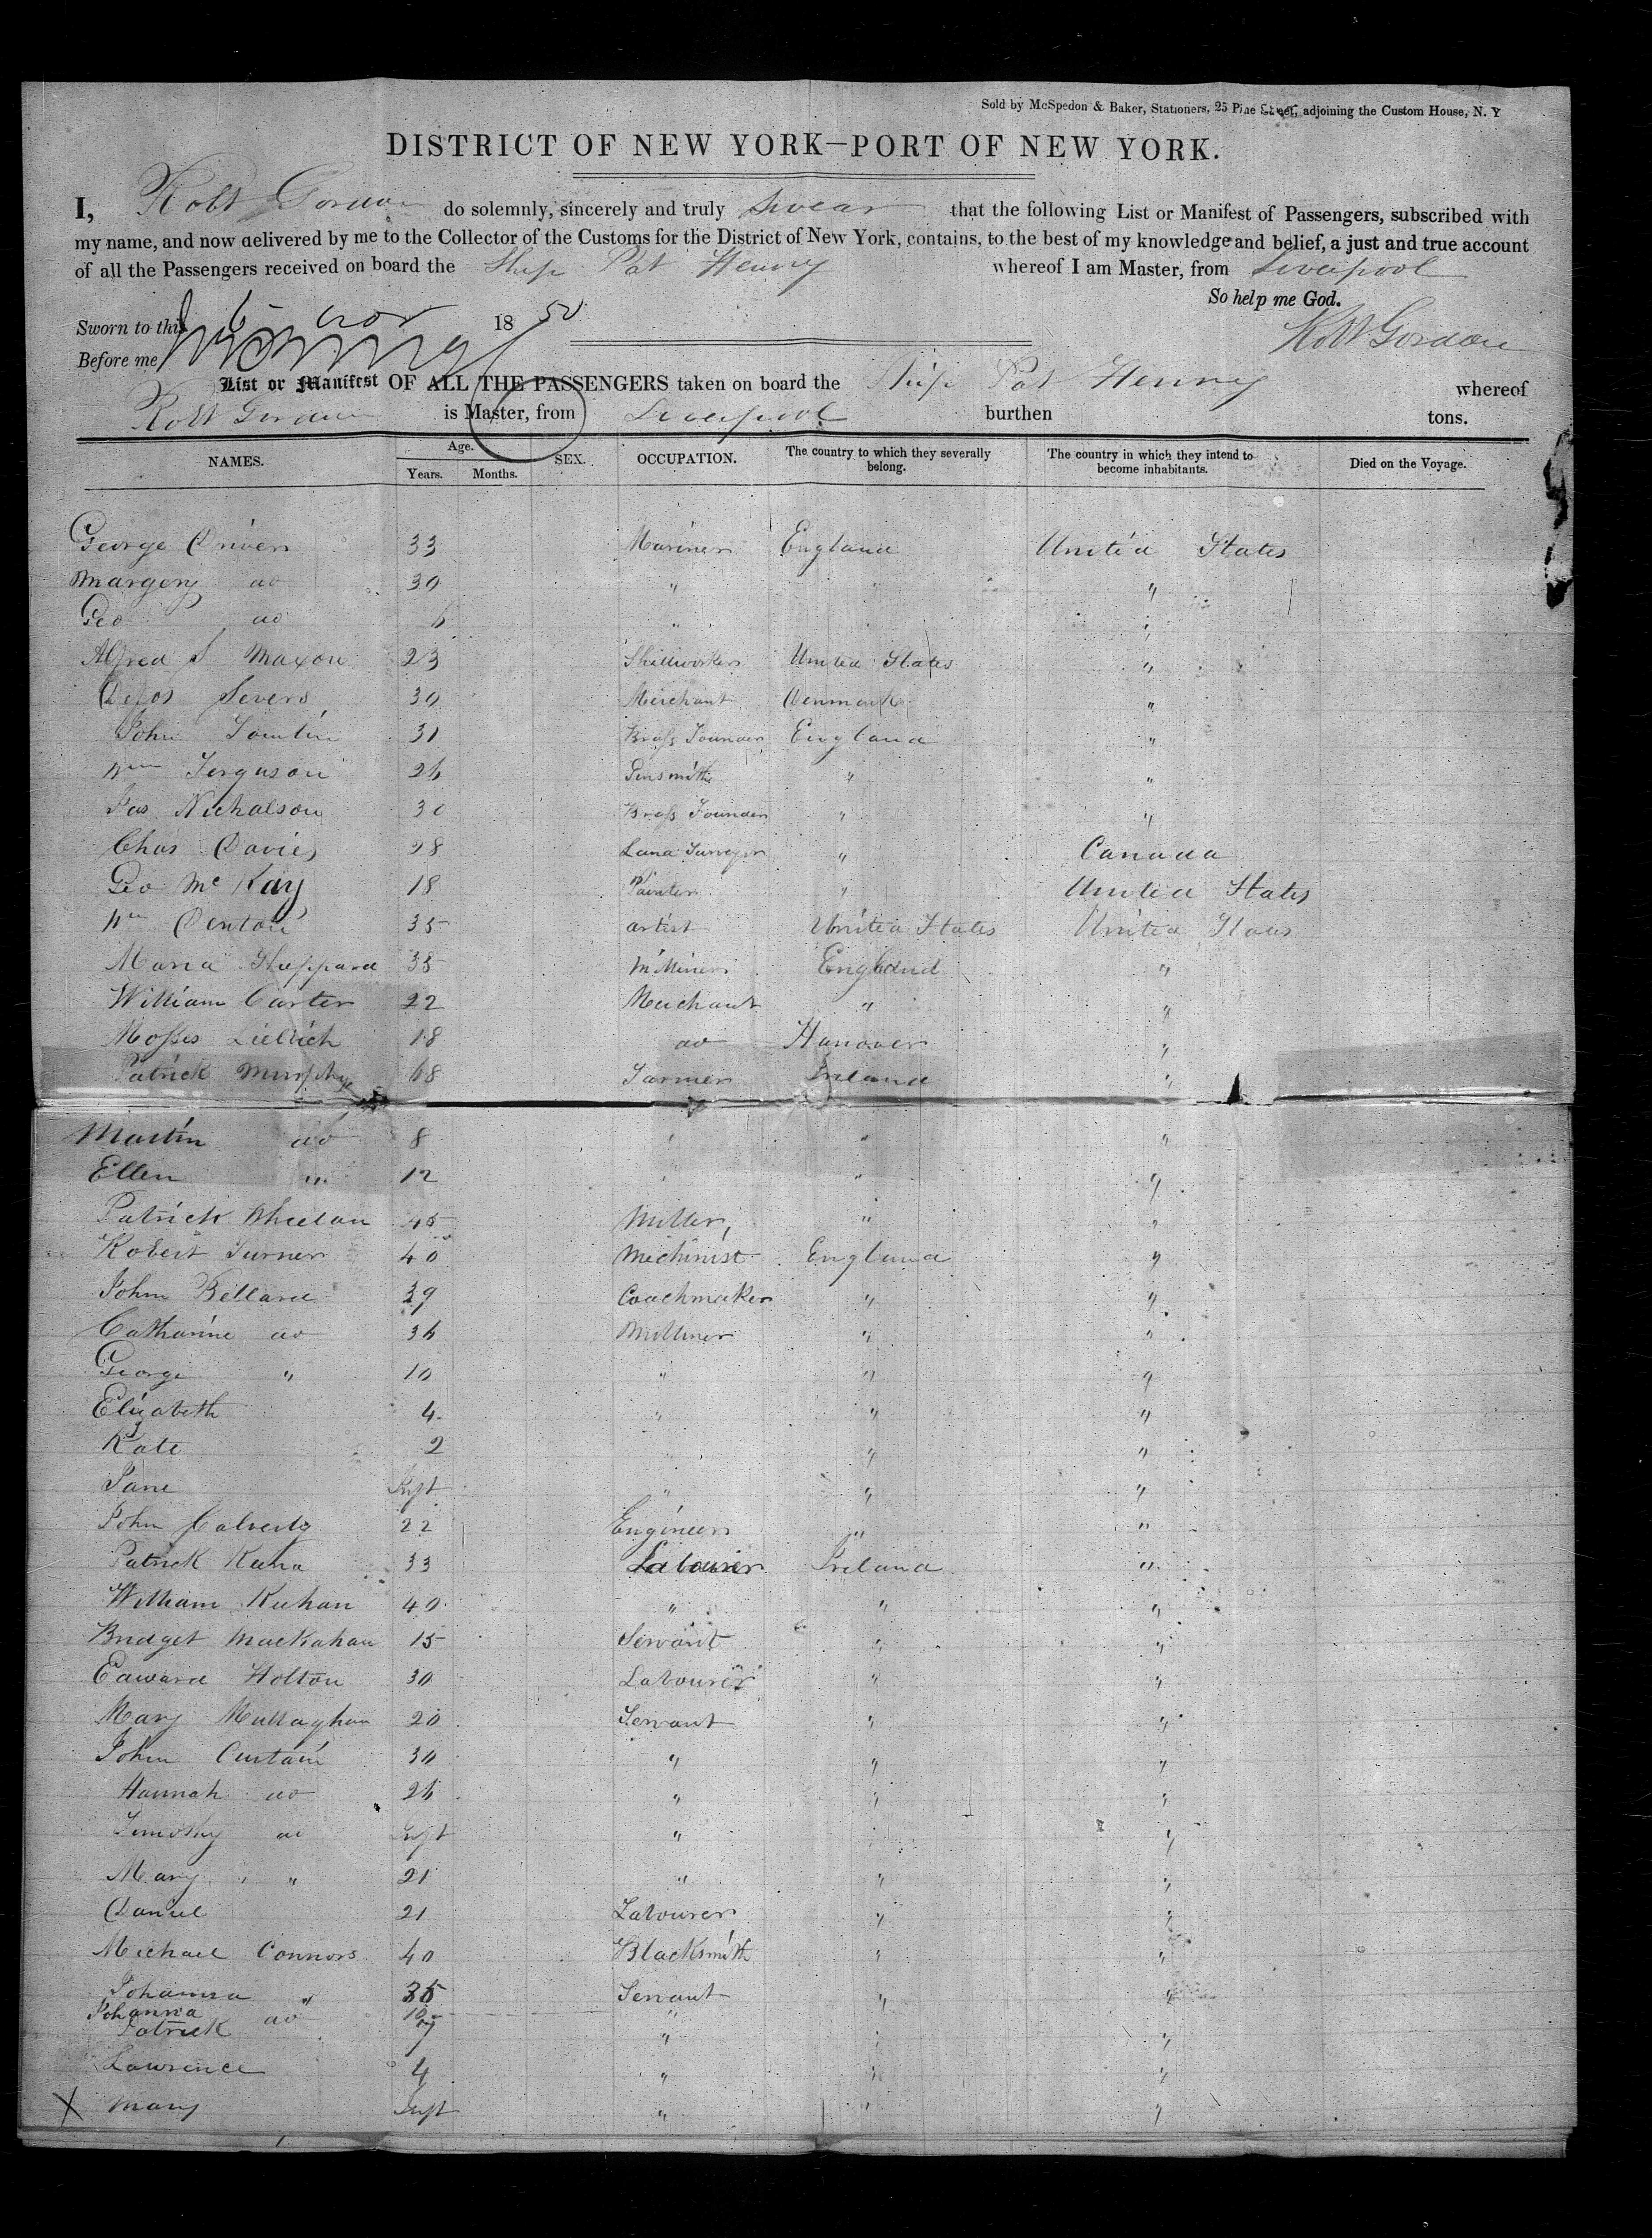 Sold by McSpedon & Baker, Stationers, 25 Pine Street, adjoining the Custom House, N. Y
DISTRICT OF NEW YORK—PORT OF NEW YORK.
I, Robt Gordon do solemnly, sincerely and truly swear that the following List or Manifest of Passengers, subscribed with
my name, and now delivered by me to the Collector of the Customs for the District of New York, contains, to the best of my knowledge and belief, a just and true account
of all the Passengers received on board the Ship Pat Henry whereof I am Master, from Liverpool
So help me God.
Sworn to this 6 Nov 1850
Robt Gordon
Before me
List or Manifest OF ALL THE PASSENGERS taken on board the Ship Pat Henry whereof
Robt Gordon is Master, from Liverpool burthen tons.
NAMES. Age. Years. Months. SEX. OCCUPATION. The country to which they severally belong. The country in which they intend to become inhabitants. Died on the Voyage.
George Driver 33 Mariner England United States
Margery do 30 " " "
Geo do 6 " "
Alfred S Maxon 23 United States "
Severs 30 Merchant Denmark "
John Tomlin 31 Brass Founder England "
Wm Ferguson 26 " "
Jas Nicholson 30 Brass Founder " "
Chas Davies 28 Land Surveyor " Canada
Geo Mc Kay 18 Painter " United States
Wm Denton 35 artist United States United States
Maria Sheppard 38 Milliner England "
William Carter 22 Merchant " "
Mosses 18 do Hanover "
Patrick Murphy 68 Farmer Ireland "
Martin do 8 " " "
Ellen " 12 " " "
Patrick Wheelan 45 Miller, " "
Robert Turner 40 Mechinist England "
John Bellard 39 Coachmaker " "
Catharine do 36 Milliner " "
George " 10 " " "
Elizabeth 4 " " "
Kate 2 " "
Jane Inft " " "
John Calverly 22 Engineer " "
Patrick 33 Labourer Ireland "
William Kuhan 40 " " "
Bridget Mackahan 15 Servant " "
Edward Holton 30 Labourer " "
Mary Mullaghan 20 Servant " "
John Curtain 30 " " "
Hannah do 26 " " "
Timothy do Inft " "
Mary " 21 " " "
Daniel 21 Labourer " "
Michael Connors 40 Blacksmith " "
Johanna " 35 Servant " "
Johanna do 10 "
Patrick 7 " " "
Lawrence 4 " " "
X Mary Inft " " "